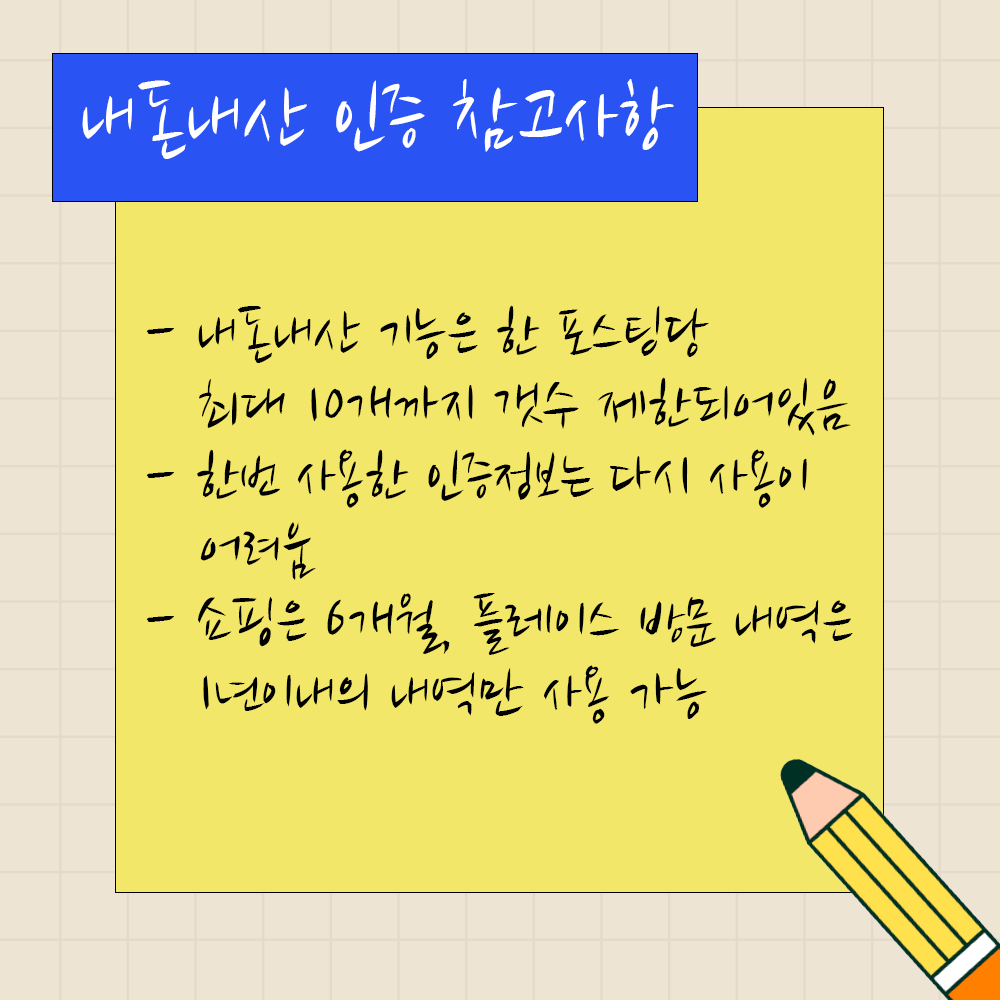 내돈내산 인증 참고사항
- 내돈내산 기능은 한 포스팅당
최대 10개까지 갯수 제한되어있음
- 한번 사용한 인증정보는 다시 사용이
어려움
- 쇼핑은 6개월, 플레이스 방문 내역은
1년이내의 내역만 사용 가능